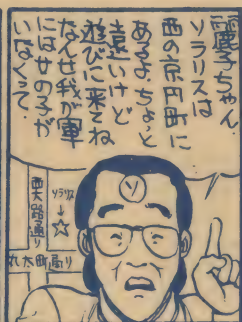 麗子ちゃん.
ソラリスは
西の京円町に
あるよ.ちょっと
遠いけど
遊びに来てね
なんせ我が軍
には女の子が
いなくって.
ソ
ソラリス
↓
☆
西大路通り
丸太町通り